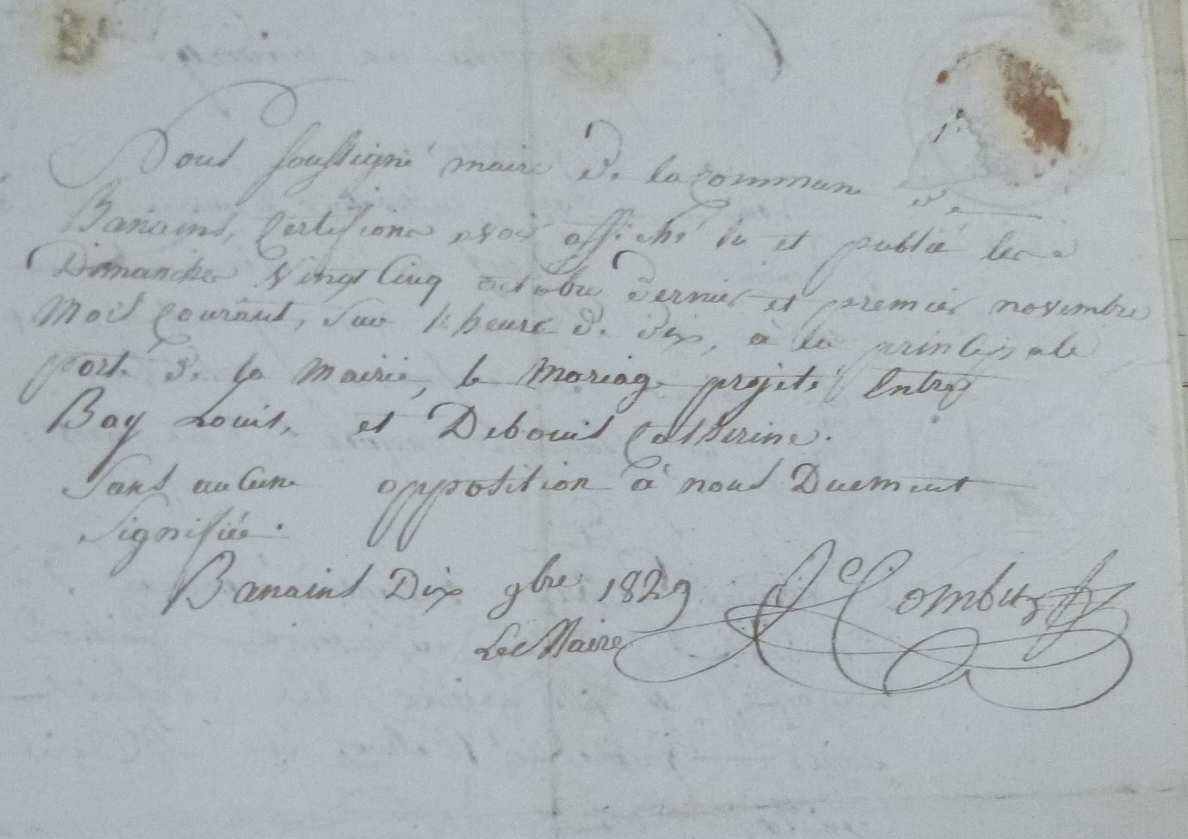 Nous soussigné maire de la commune de
Banains, certifions avoir affiché lu et publié les
Dimanches vingt cinq octobre dernier et premier novembre
mois courant, sur l'heure de dix, à la principale
porte de la mairie, le mariage projeté Entre
Bay Louis, et Debouis Catherine.
Sans aucune opposition à nous Duement
Signifiée.
Banains Dix 9bre 1829
Le Maire